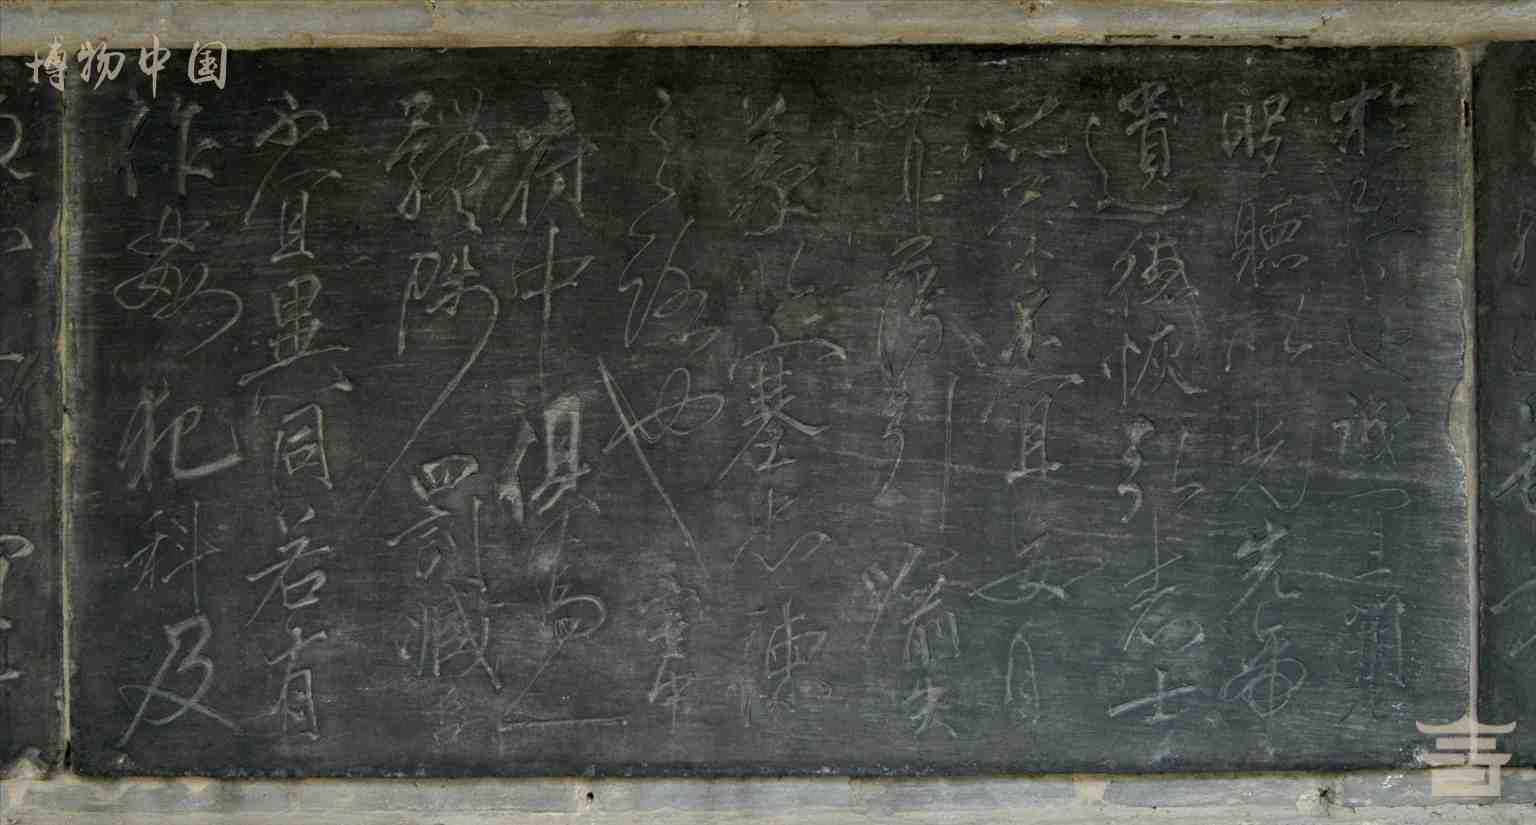 博物中国
於陛下也誠宜開張
聖聽以光先帝
遺德恢弘志士
之氣不宜妄自
菲薄引喻失
義以塞忠諫
之路也宮中
府中俱為一
體陟罰臧否
不宜異同若有
作姦犯科及